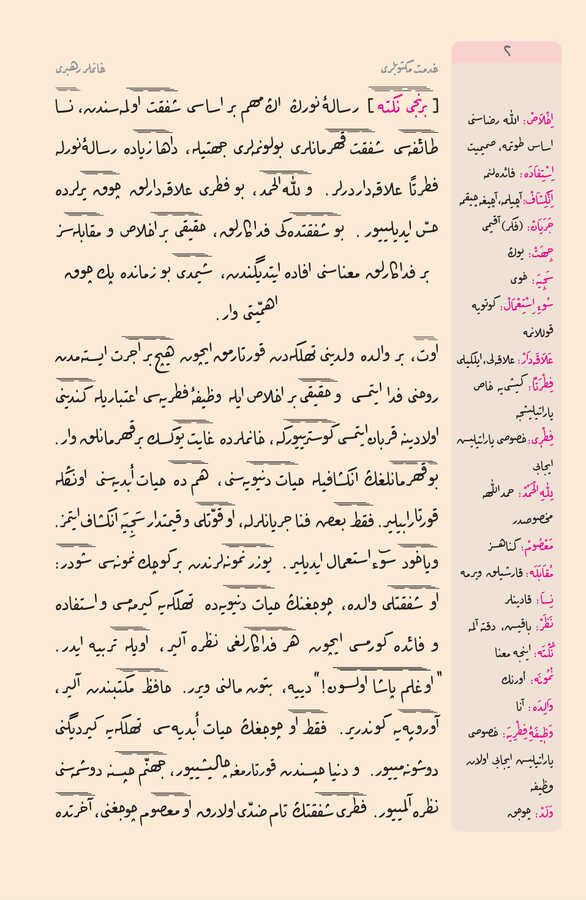 ٢
خدمت مكتوبلرى
خانملر رهبرى
[ برنجى نكته ] رسالۀ نورڭ اڭ مهم بر اساسى شفقت اولمه‌سندن، نسا
طائفه‌سى شفقت قهرمانلرى بولونملرى جهتيله، داها زياده رسالۀ نورله
فطرتًا علاقه‌داردرلر. و لله الحمد، بو فطرى علاقه‌دارلق چوق يرلرده
حسّ ايديلييور. بو شفقتده‌كى فداكارلق، حقيقى بر اخلاص و مقابله‌سز
بر فداكارلق معناسنى افاده ايتديگندن، شيمدى بو زمانده پك چوق
اهمّيتى وار.
اوت، بر والده ولدينى تهلكه‌دن قورتارمق ايچون هيچ بر اجرت ايسته‌مه‌دن
روحنى فدا ايتمسى و حقيقى بر اخلاص ايله وظيفۀ فطريه‌سى اعتباريله كندينى
اولادينه قربان ايتمسى گوستريوركه، خانملرده غايت يوكسك بر قهرمانلق وار.
بو قهرمانلغڭ انكشافيله حيات دنيويه‌سنى، هم ده حيات أبديه‌سنى اونڭله
قورتارابيلير. فقط بعض فنا جريانلرله، او قوّتلى و قيمتدار سَجِيَه انكشاف ايتمز.
وياخود سوء استعمال ايديلير. يوزر نمونه‌لرندن بر كوچك نمونه‌سى شودر:
او شفقتلى والده، چوجغنڭ حيات دنيويه‌ده تهلكه‌يه گيرمه‌مسى و استفاده
و فائده گورمسى ايچون هر فداكارلغى نظره آلير، اويله تربيه ايدر.
"اوغلم پاشا اولسون!" دييه، بتون مالنى ويرر. حافظ مكتبندن آلير،
آوروپه‌يه گوندرير. فقط او چوجغڭ حيات أبديه‌سى تهلكه‌يه گيرديگنى
دوشونمييور. و دنيا حبسندن قورتارمغه چاليشييور، جهنّم حبسنه دوشمه‌سنى
نظره آلمييور. فطرى شفقتڭ تام ضدّى اولارق او معصوم چوجغنى، آخرتده
اِخْلَاصْ: الله رضاسنى
اساس طوتمه، صميميت
اِسْتِفَادَه: فائده‌لنمه
اِنْكِشَافْ: آچيلمه، آچيغه چيقمه
جَرَيَانْ: (فكر) آقيمى
جِهَتْ: يوڭ
سَجِيَه: خوى
سُوءِ اِسْتِعْمَالْ: كوتويه
قوللانمه
عَلَاقَه‌دَارْ: علاقه‌لى، ايلگيلى
فِطْرَتًا: كيشى‌يه خاص
ياراتيليشجه
فِطْرِى: خصوصى ياراتيليشڭ
ايجابى
لِلّٰهِ الْحَمْدُ: حمد اللّٰهه
مخصوصدر
مَعْصُومْ: گناهسز
مُقَابَلَه: قارشيلق ويرمه
نِسَا: قادينلر
نَظَرْ: باقيش، دقّته آلمه
نُكْتَه: اينجه معنا
نُمُونَه: اورنك
وَالِدَه: آنا
وَظِيفَۀِ فِطْرِيَه: خصوصى
ياراتيليشڭ ايجابى اولان
وظيفه
وَلَدْ: چوجوق